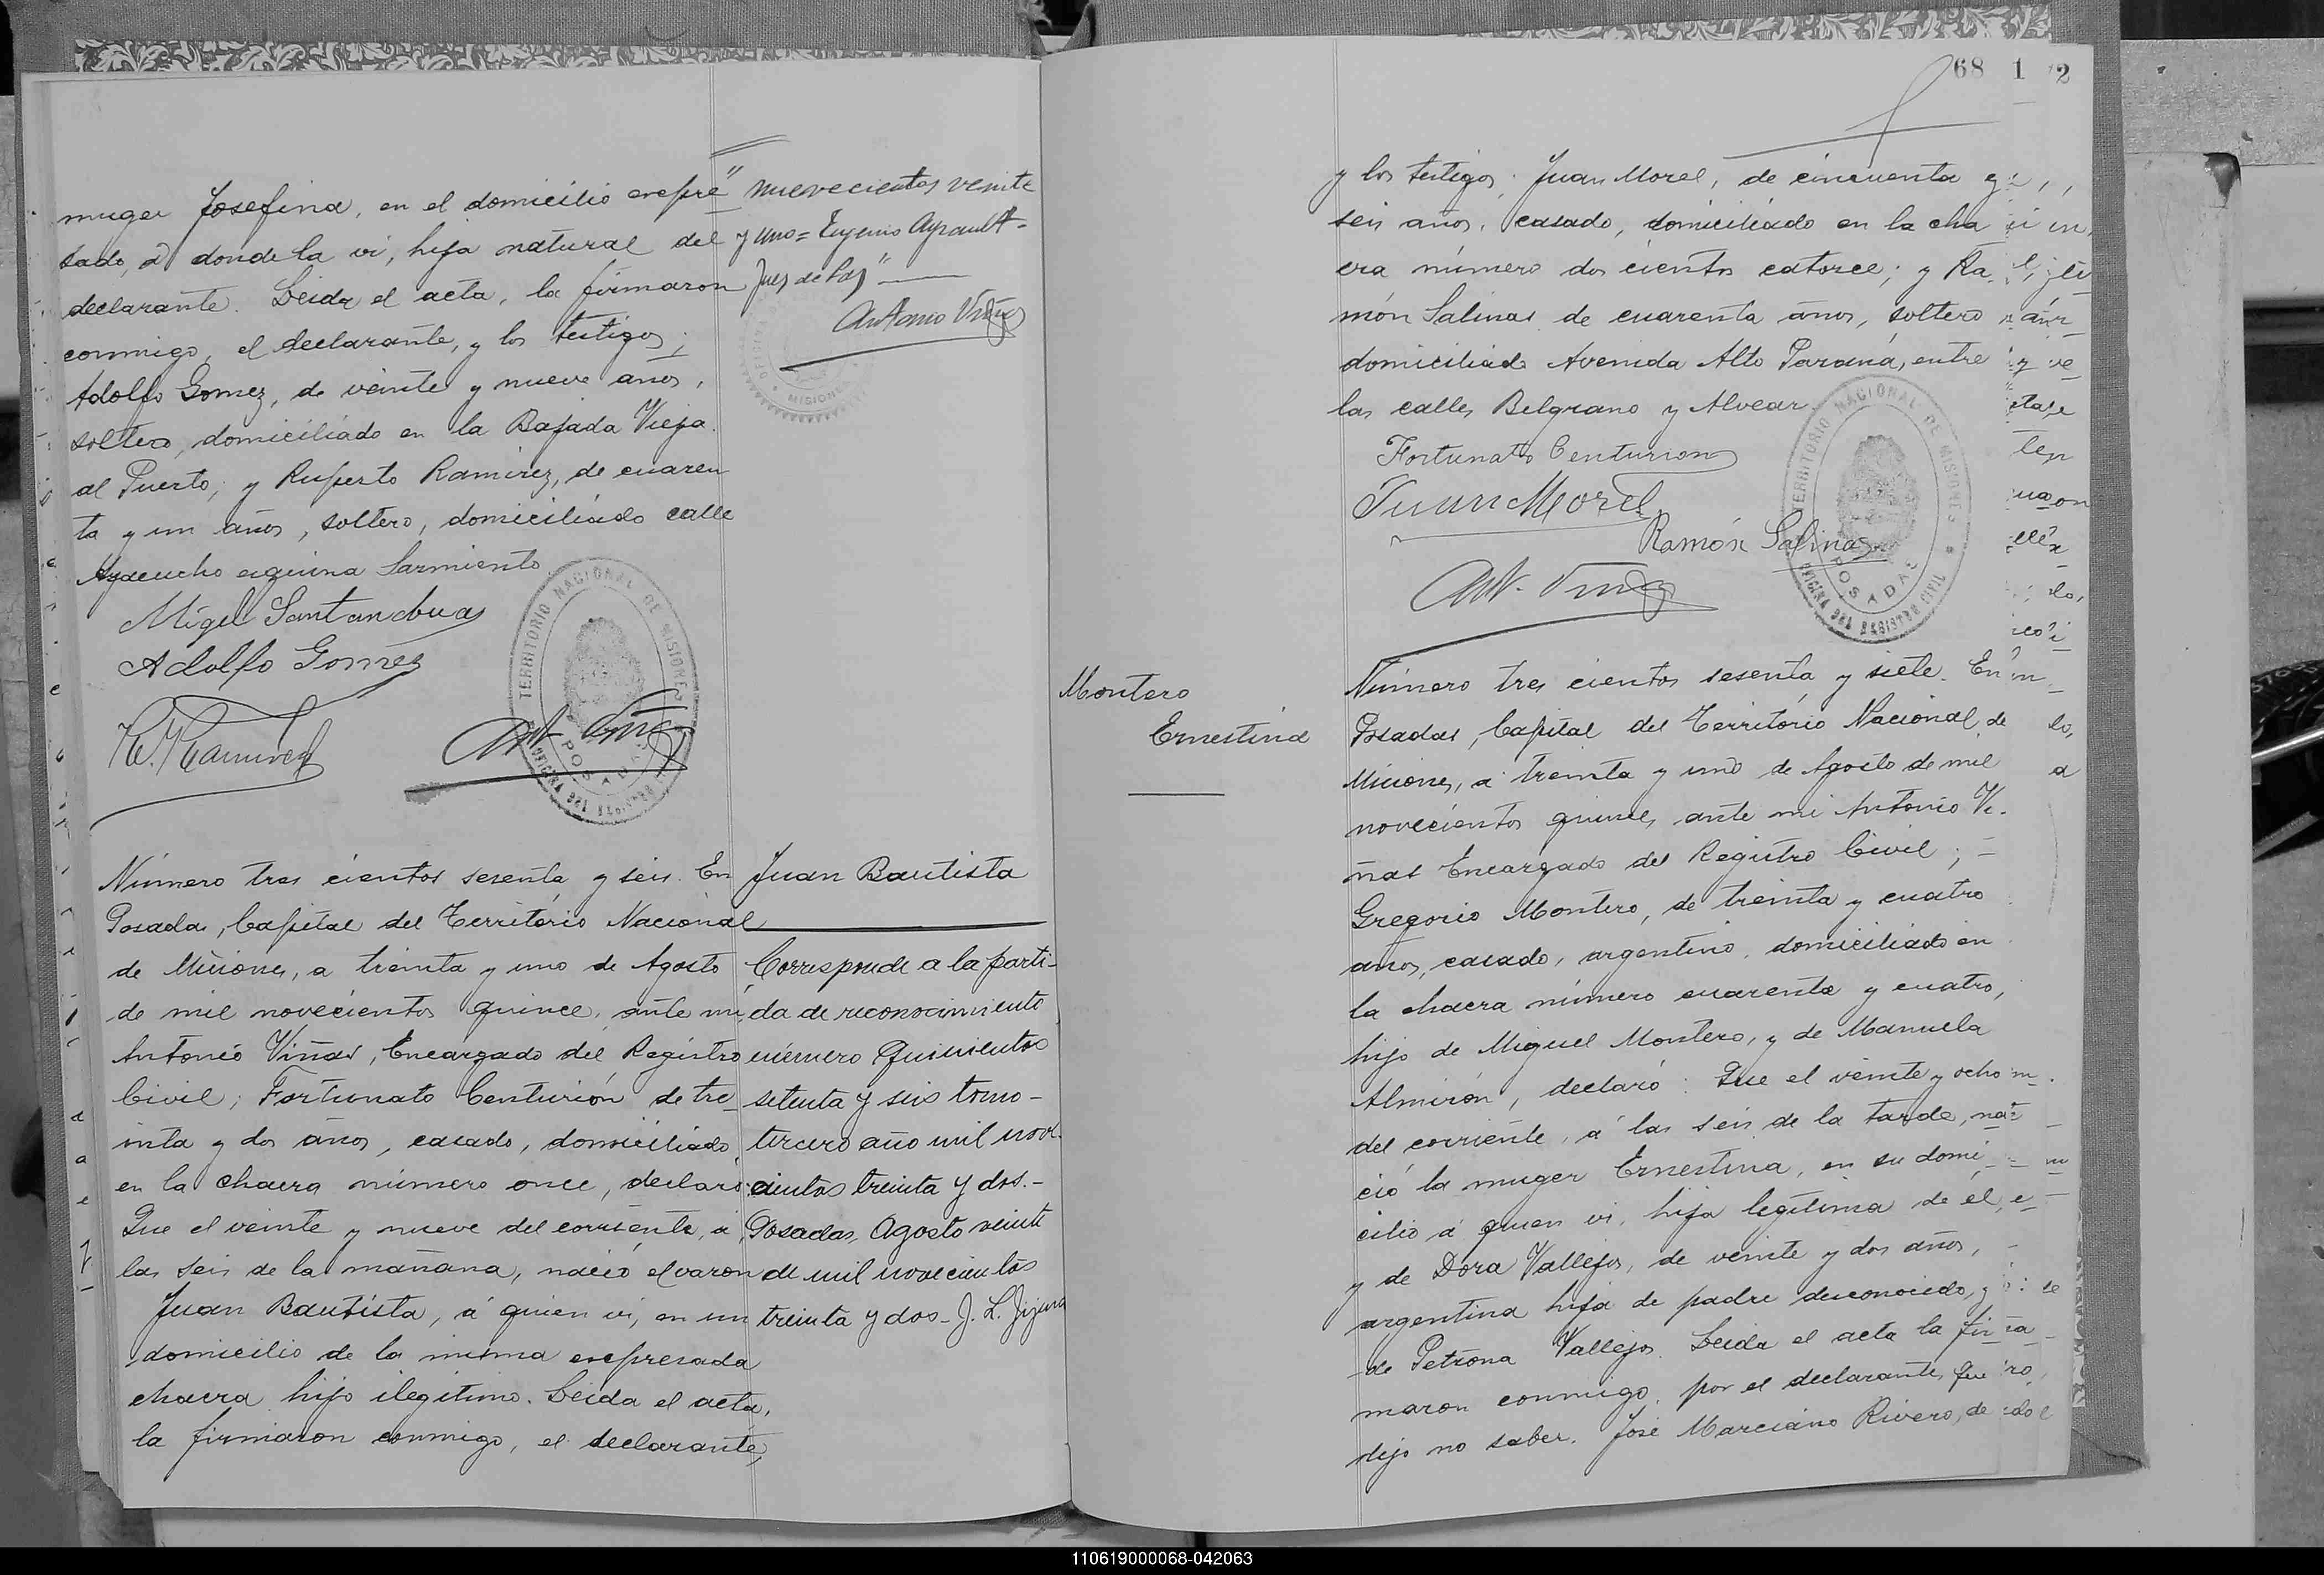 muger Josefina, en el domicilio expre
sado, a donde la vi, hija natural del
declarante. Leida el acta, la firmaron
conmigo, el declarante, y los testigos;
Adolfo Gomez, de veinte y nueve años,
soltero, domiciliado en la Bajada Vieja
al Puerto; y Ruperto Ramirez, de cuaren
ta y un años, soltero, domiciliado calle
Ayacucho esquina Sarmiento
Adolfo Gomez
TERRITORIO NACIONAL DE MISIONES
POSADAS
nuevecientos veinte
y uno = Eugenio Ayrault =
Juez de Paz"
Antonio Viñas
MISIONES
Número tres cientos sesenta y seis. En
Posadas, Capital del Territorio Nacional
de Misiones, a treinta y uno de Agosto
de mil novecientos quince, ante mi
Antonio Viñas, Encargado del Registro
Civil; Fortunato Centurión de tre
inta y dos años, casado, domiciliado
en la chacra número once, declaró:
Que el veinte y nueve del corriente, á
las seis de la mañana, nació el varon
Juan Bautista, á quien vi, en un
domicilio de la misma expresada
chacra hijo ilegitimo. Leida el acta,
la firmaron conmigo, el declarante,
Juan Bautista
Corresponde a la parti-
da de reconocimiento
número quinientos
setenta y seis tomo-
tercero año mil nove
cientos treinta y dos.-
Posadas, Agosto veinte
de mil novecientos
treinta y dos - J. L.
68 1 2
y los testigos; Juan Morel, de cincuenta y
seis años, casado, domiciliado en la cha
cra número dos cientos catorce; y Ra
món Salinas de cuarenta años, soltero
domiciliado Avenida Alto Paraná, entre
las calles Belgrano y Alvear
Fortunato Centurion
Juan Morel
Ramón Salinas
Ant. Viñas
TERRITORIO NACIONAL DE MISIONES
OFICINA DEL REGISTRO CIVIL
POSADAS
Montero
Ernestina
Número tres cientos sesenta y siete. En
Posadas, Capital del Territorio Nacional de
Misiones, a treinta y uno de Agosto de mil
novecientos quince, ante mi Antonio Vi-
ñas Encargado del Registro Civil;
Gregorio Montero, de treinta y cuatro
años, casado, argentino, domiciliado en
la chacra número cuarenta y cuatro,
hijo de Miguel Montero, y de Manuela
Almirón, declaró: Que el veinte y ocho
del corriente, a las seis de la tarde, na
ció la muger Ernestina, en su domi
cilio á quien vi, hija legitima de él,
y de Dora Vallejos, de veinte y dos años,
argentina hija de padre desconocido, y
de Petrona Vallejos. Leida el acta la fir
maron conmigo, por el declarante, que
dijo no saber. José Marciano Rivero, de
110619000068-042063